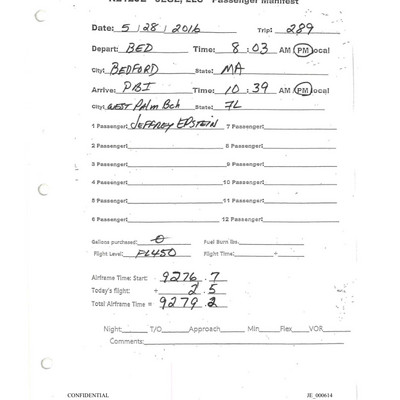 Passenger Manifest
Date: 5 / 28 / 2016 Trip: 289
Depart: BED Time: 8 : 03 AM PM Local
City: BEDFORD State: MA
Arrive: PBI Time: 10 : 39 AM PM Local
City: WEST Palm Bch State: FL
1 Passenger: JEFFREY EPSTEIN 7 Passenger:
2 Passenger: 8 Passenger:
3 Passenger: 9 Passenger:
4 Passenger: 10 Passenger:
5 Passenger: 11 Passenger:
6 Passenger: 12 Passenger:
Gallons purchased: 0 Fuel Burn lbs.
Flight Level: FL450 Flight Time: +
Airframe Time: Start: 9276.7
Today's flight: + 2.5
Total Airframe Time = 9279.2
Night: T/O Approach Min Flex VOR
Comments:
CONFIDENTIAL JE_000614